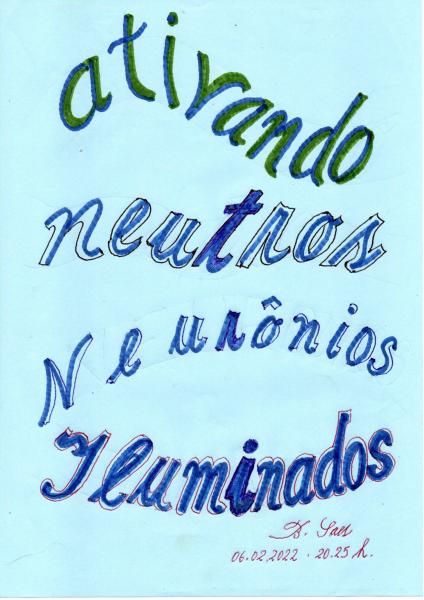 ativando
neutros
Neurônios
Iluminados
D. Saes
06.02.2022 . 20.25 h.